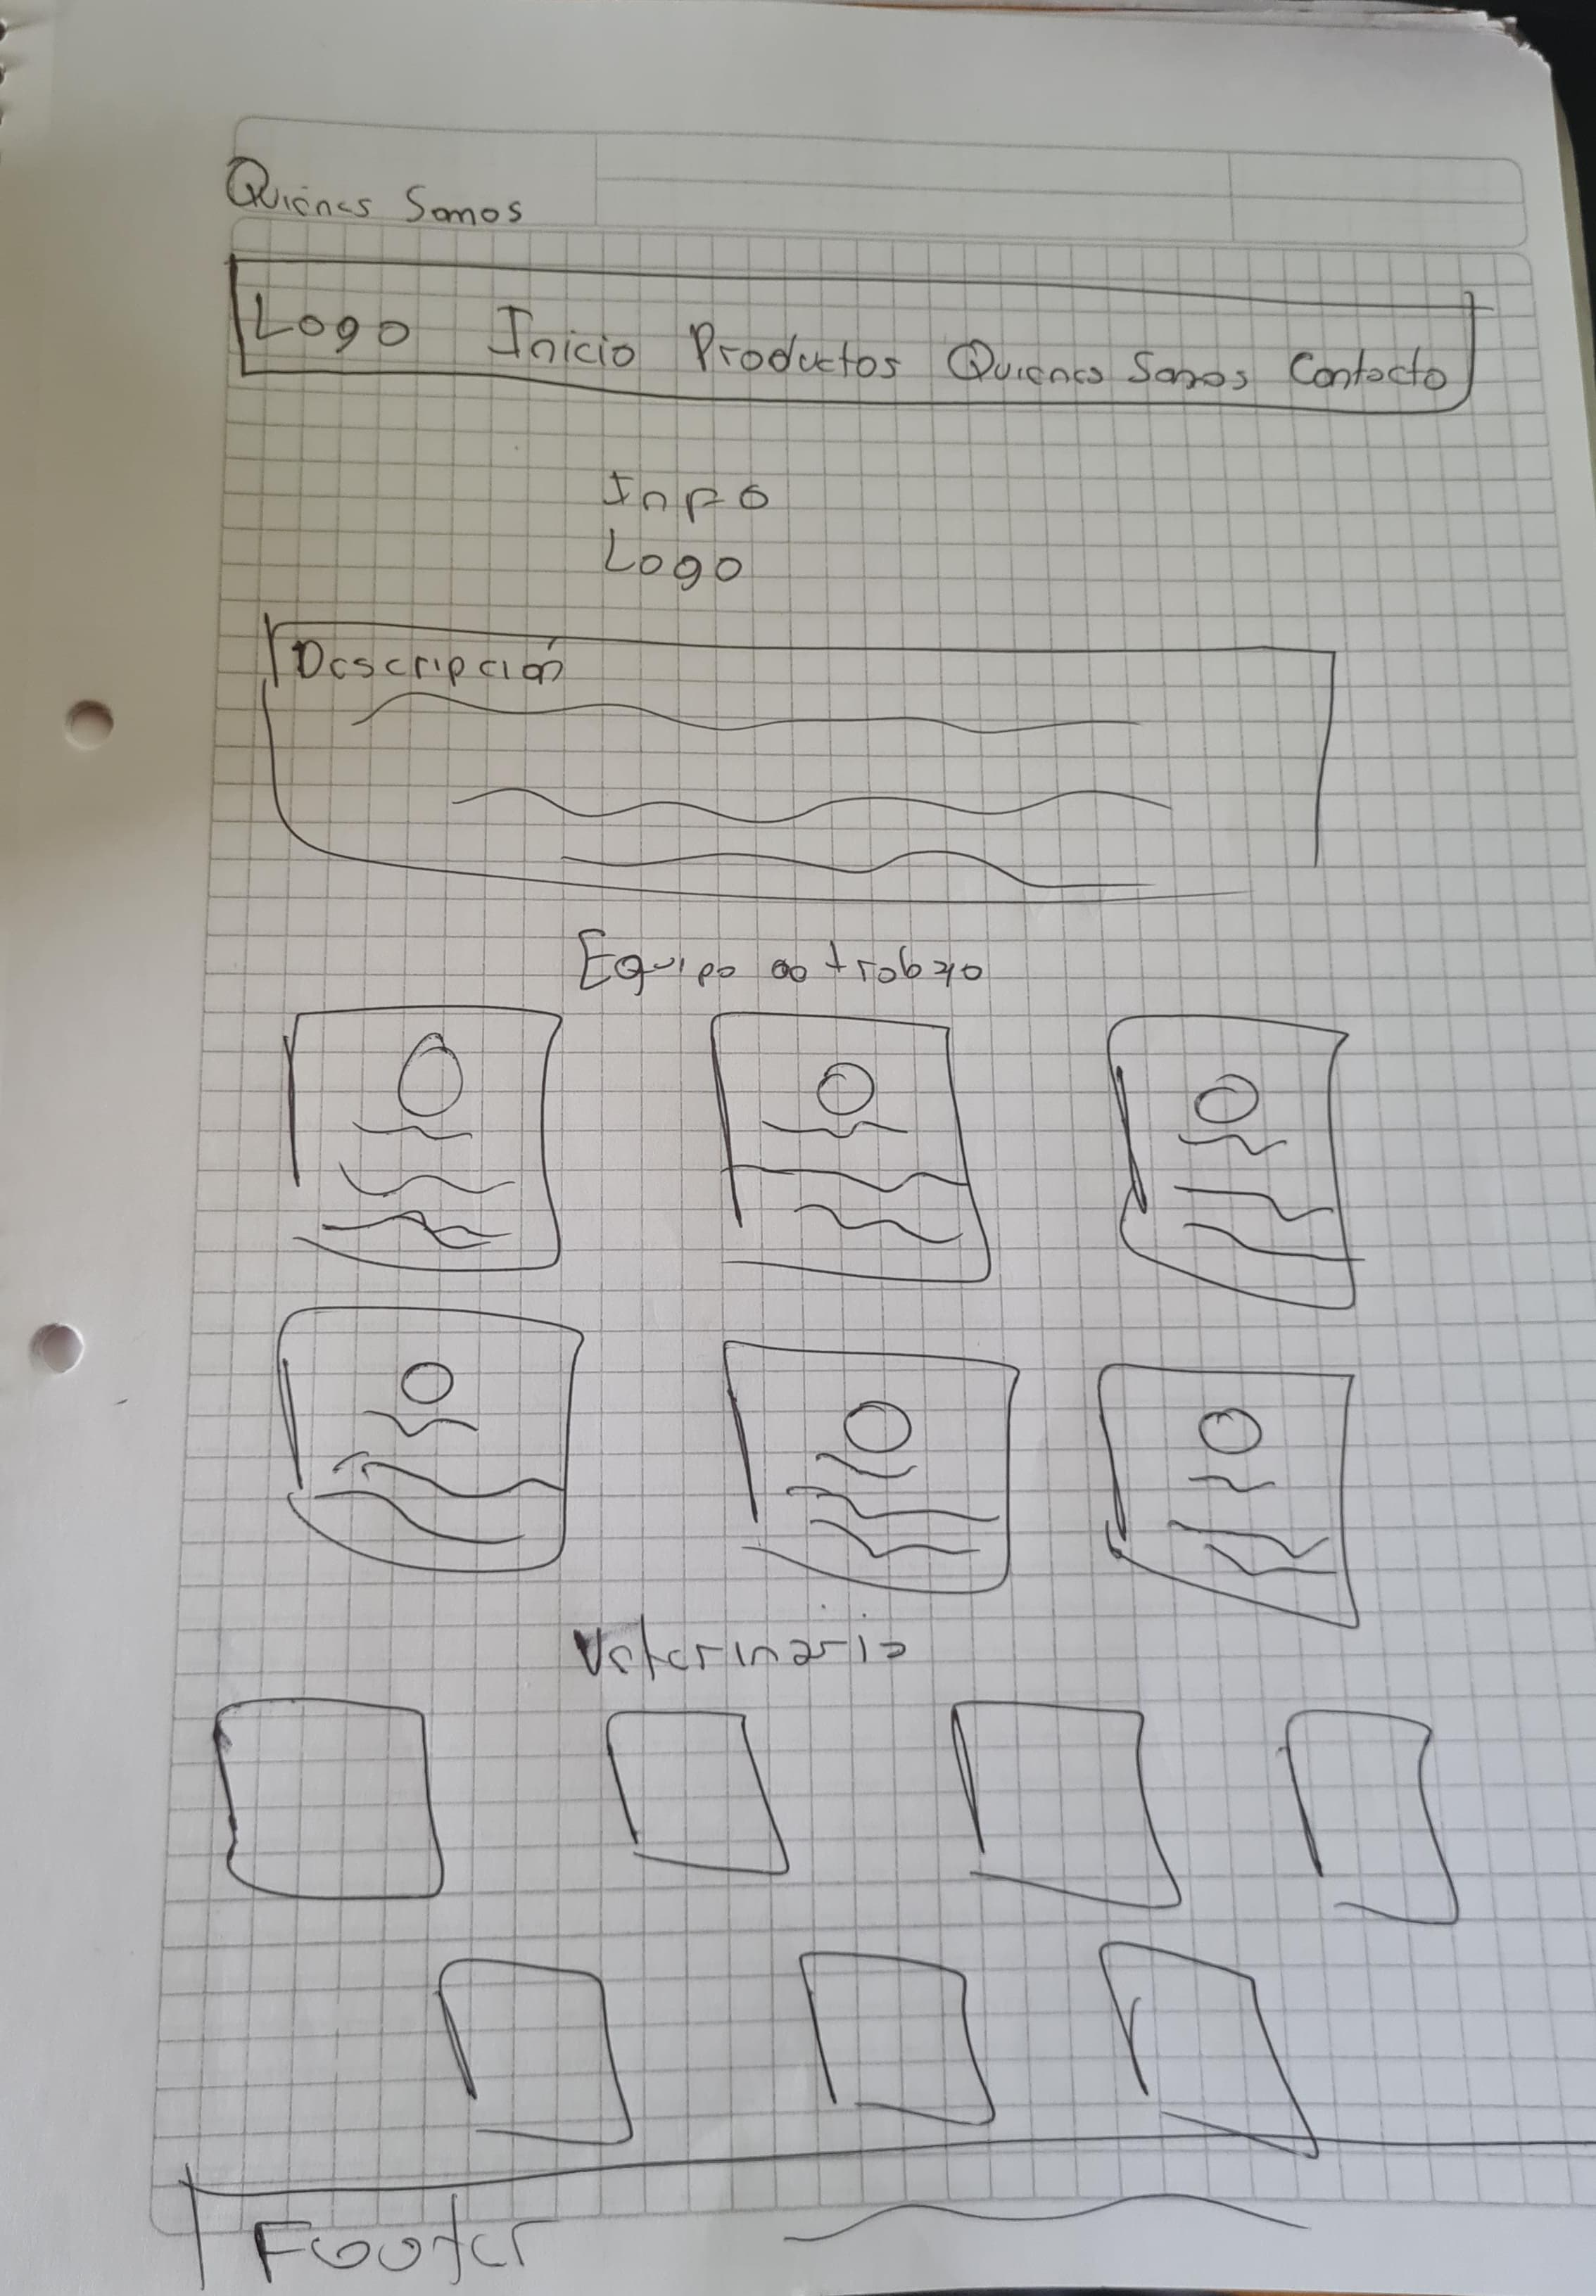 Quiénes Somos
Logo Inicio Productos Quienes Somos Contacto
Info
Logo
Descripción
Equipo de trabajo
Veterinaria
Footer